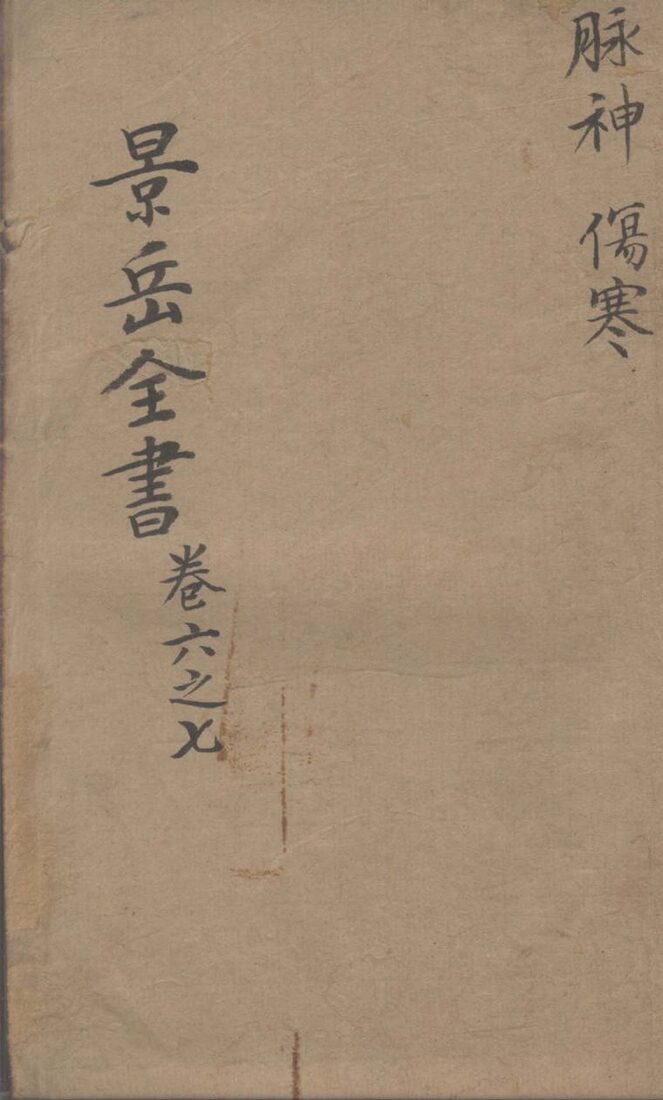 脉神 傷寒
景岳全書 卷六之七